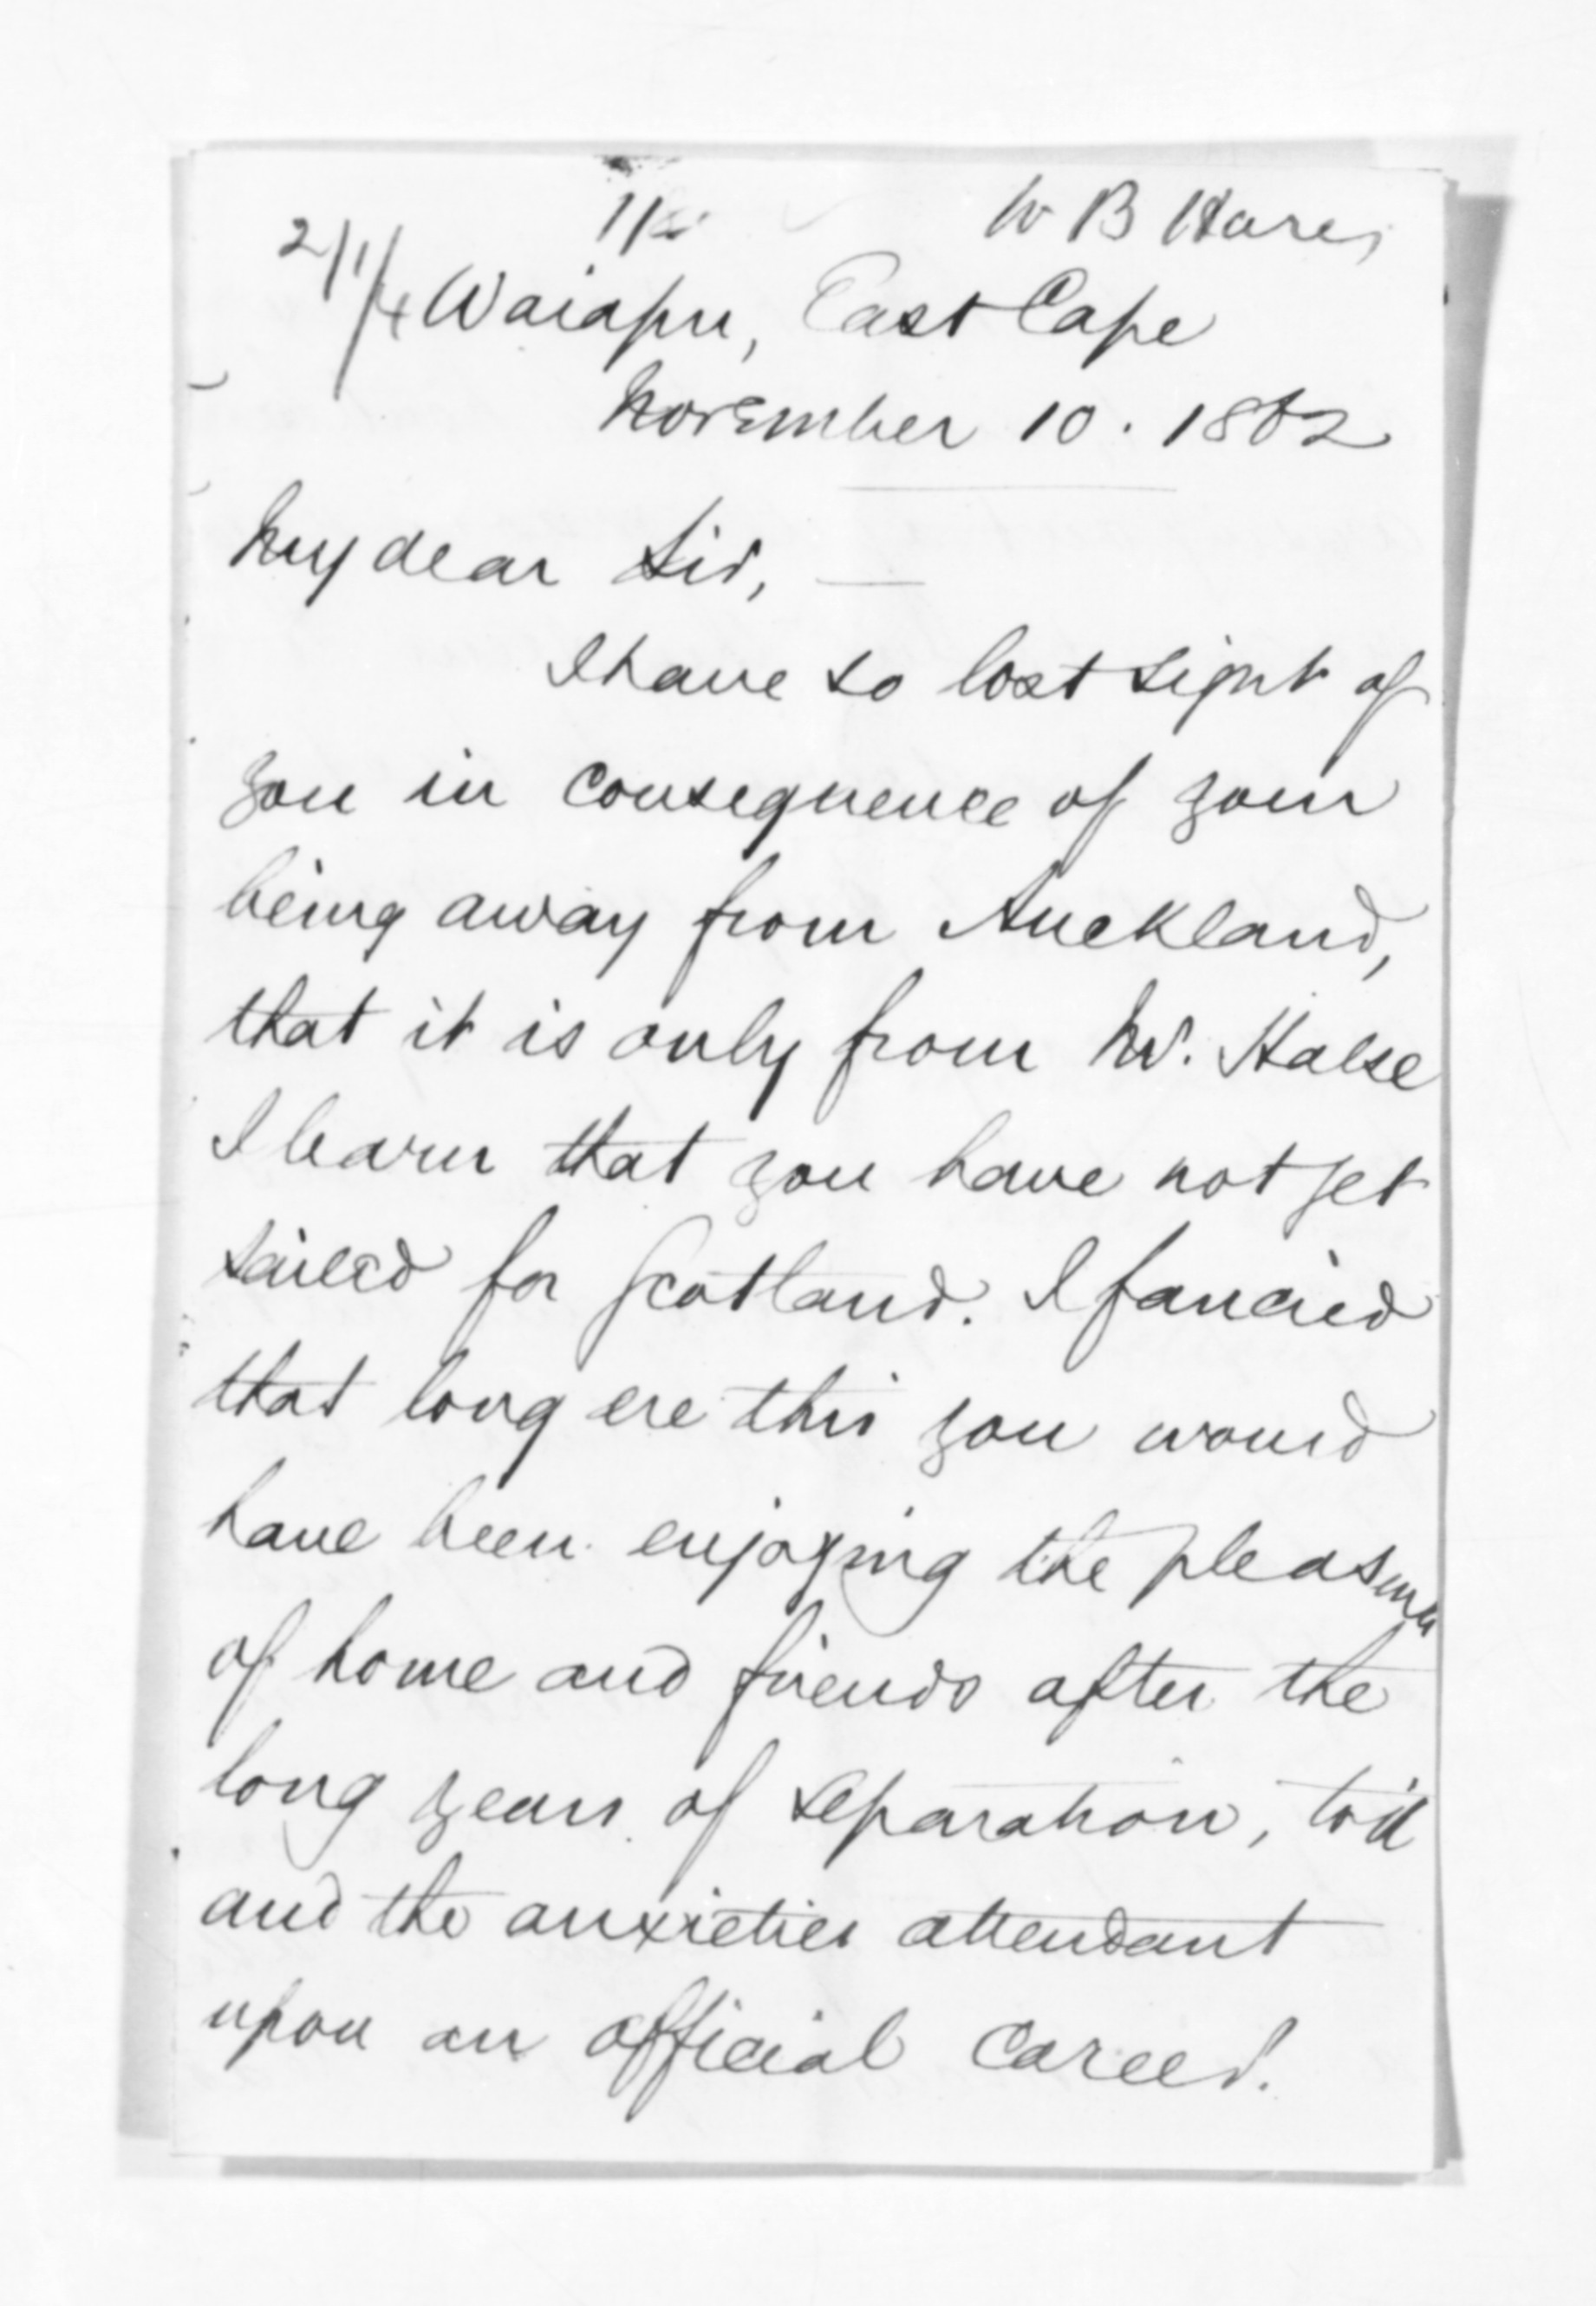 W B
Waiapu, East Cape
November 10. 1862
My dear Sir,
I have so lost sight of
you in consequence of your
being away from Auckland,
that it is only from Mr. Halse
I learn that you have not yet
sailed for Scotland. I fancied
that long ere this you would
have been enjoying the pleasures
of home and friends after the
long years of separation, toil
and the anxieties attendant
upon an official career.